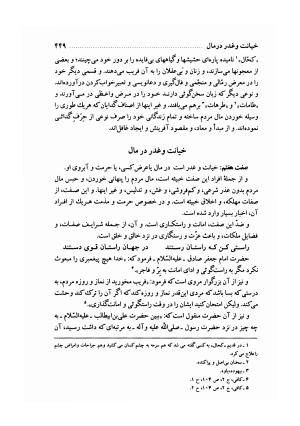 خیانت وغدر درمال ۴۴۹
«کحّال» نامیده پاره‌ای حشیشها و گیاههای بی‌فایده را بر دور خود می‌چینند؛ و بعضی
از معجونها می‌سازند، و زنان و بی‌عقلان را به آن فریب می‌دهند. و قسمی دیگر خود
را در معرض رمّالی و منجّمی و فال‌گیری و دعانویسی و تعبیرخواب‌کردن درآورده‌اند.
و نوعی دیگر که زبان سخن‌گوئی دارند خود را در مرض واعظی درمی‌آورند و
«طامات» و «طرهات» برهم می‌بافند. و غیر اینها از اصناف‌گدایان که هریک طوری را
وسیله خوردن مال مردم ساخته و تمام زندگانی خود را صرف نوعی از حِرَفِ گدائی
نموده‌اند. و از مبدأ و معاد، و مقصود آفرینش و ایجاد غافل‌اند.
خیانت وغدر در مال
صفت هفتم: خیانت و غدر است در مال یاعرض کسی، یا حرمت و آبروی او.
و از جملهٔ افراد این صفت خبیثه است، مال مردم را پنهانی خوردن، و حبس مال
مردم بدون عذر شرعی، و کم‌فروشی، و غش، و تدلیس، و غیر اینها. و این صفت، از
صفات مهلکه، و اخلاق خبیثه است. و در خصوص حرمت و مذمت هریک از افراد
آن، اخبار بسیار وارد شده است.
و ضدّ این صفت، امانت و راستکاری است. و آن، از جمله شرایف صفات، و
فضایل ملکات، و باعث عزّت و رستگاری در نزد خالق و خلق است.
راستی کن که راستان رستند در جهان راستان قوی دستند
حضرت امام جعفر صادق ـ علیه‌السّلام ـ فرمود که: «خدا هیچ پیغمبری را مبعوث
نکرد مگر به راستگوئی و ادای امانت به برّ و فاجر.»
و نیز از آن بزرگوار مروی است که فرمود: «فریب مخورید از نماز و روزه مردم، به
درستی که بسا باشد که مردی این‌قدر نماز و روزه کند که اگر آن را ترک کند وحشت
می‌کند. ولیکن امتحان‌کنید ایشان را در وقت راستگوئی و امانت‌گذاری.»
و نیز از آن حضرت منقول است که: «ببین حضرت علی‌بن‌ابیطالب ـ علیه‌السّلام ـ به
چه چیز در نزد حضرت رسول ـ صلی‌الله علیه و آله ـ به مرتبه‌ای که داشت رسید، آن
۱ ـ در قدیم «کحال» به کسی گفته می شد که هم سرمه به چشم‌کسان می کشید وهم جراحات وامراض چشم
را علاج می کرد.
۲ ـ سخنان بی‌اصل و پراکنده.
۳ ـ بیهوده‌باوه.
۴ ـ کافی، ج ۲، ص ۱۰۴، ح ۱.
۵ ـ کافی، ج ۲، ص ۱۰۴، ح ۲.